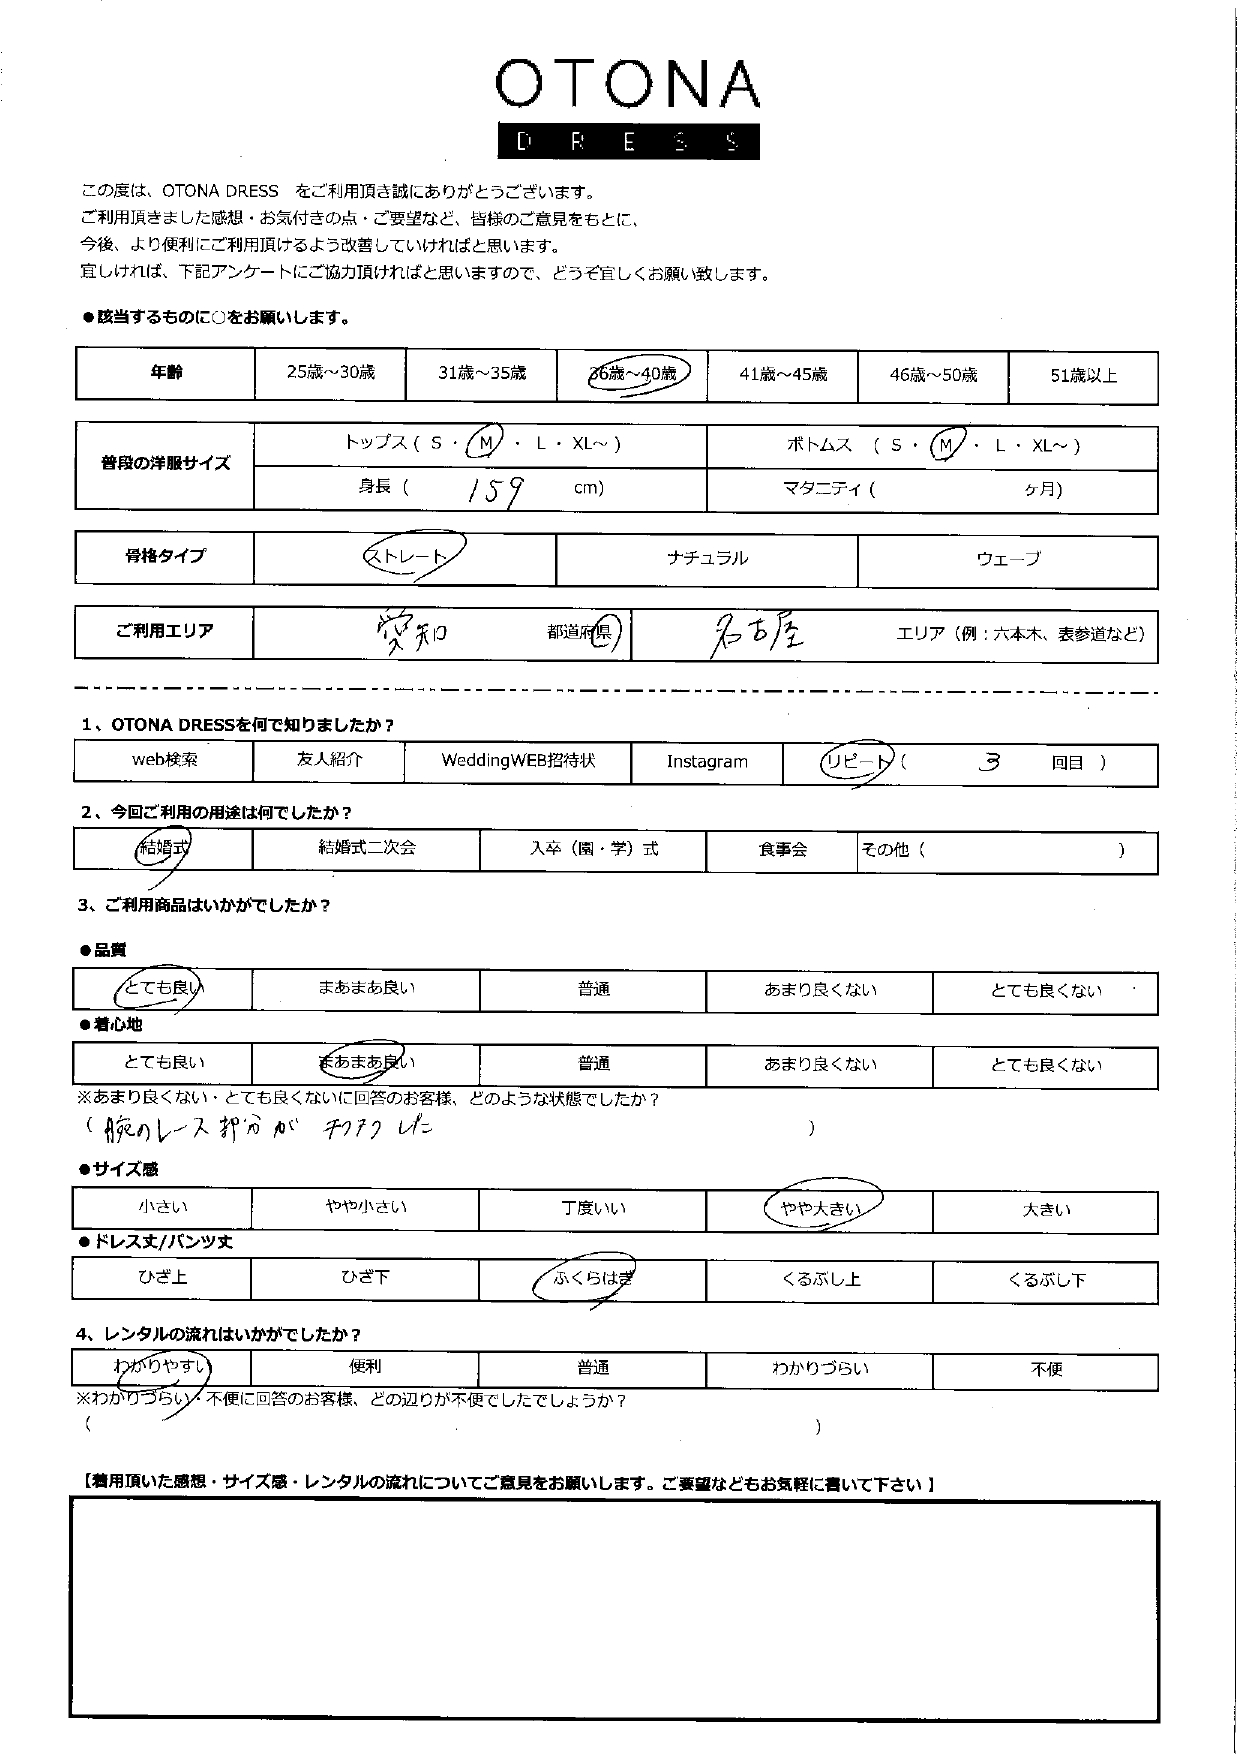 OTONA
DRESS
この度は、OTONA DRESS　をご利用頂き誠にありがとうございます。
ご利用頂きました感想・お気付きの点・ご要望など、皆様のご意見をもとに、
今後、より便利にご利用頂けるよう改善していければと思います。
宜しければ、下記アンケートにご協力頂ければと思いますので、どうぞ宜しくお願い致します。
●該当するものに○をお願いします。
年齢 25歳～30歳 31歳～35歳 36歳～40歳 41歳～45歳 46歳～50歳 51歳以上
普段の洋服サイズ トップス（ S ・ M ・ L ・ XL～ ） ボトムス （ S ・ M ・ L ・ XL～ ）
身長（ 159 cm） マタニティ（ ヶ月）
骨格タイプ ストレート ナチュラル ウェーブ
ご利用エリア 愛知 都道府県 名古屋 エリア（例：六本木、表参道など）
1、OTONA DRESSを何で知りましたか？
web検索 友人紹介 WeddingWEB招待状 Instagram リピート（ 3 回目 ）
2、今回ご利用の用途は何でしたか？
結婚式 結婚式二次会 入卒（園・学）式 食事会 その他（ ）
3、ご利用商品はいかがでしたか？
●品質
とても良い まあまあ良い 普通 あまり良くない とても良くない
●着心地
とても良い まあまあ良い 普通 あまり良くない とても良くない
※あまり良くない・とても良くないに回答のお客様、どのような状態でしたか？
（ 腕のレース部分が チクチクした ）
●サイズ感
小さい やや小さい 丁度いい やや大きい 大きい
●ドレス丈/パンツ丈
ひざ上 ひざ下 ふくらはぎ くるぶし上 くるぶし下
4、レンタルの流れはいかがでしたか？
わかりやすい 便利 普通 わかりづらい 不便
※わかりづらい・不便に回答のお客様、どの辺りが不便でしたでしょうか？
（ ）
【着用頂いた感想・サイズ感・レンタルの流れについてご意見をお願いします。ご要望などもお気軽に書いて下さい 】